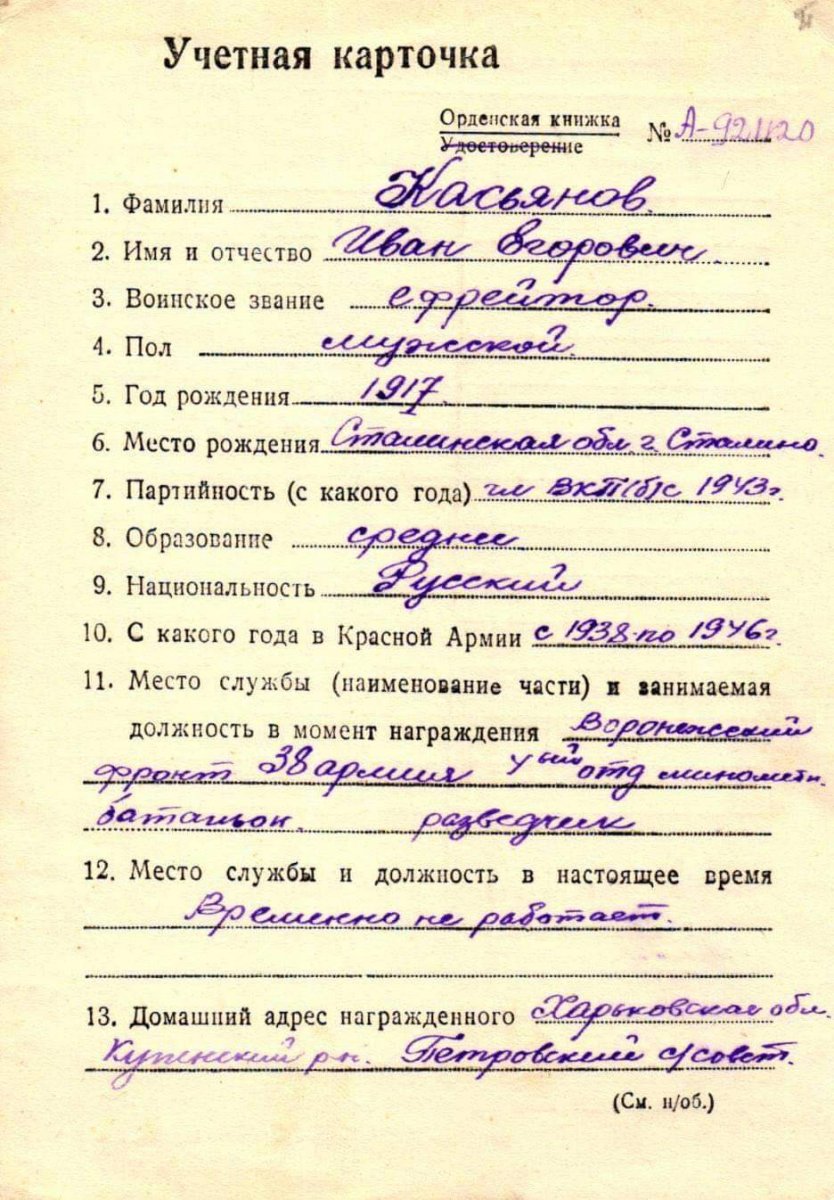 Учетная карточка
Орденская книжка
Удостоверение
№ А-921120
1. Фамилия Касьянов.
2. Имя и отчество Иван Егорович
3. Воинское звание ефрейтор.
4. Пол мужской.
5. Год рождения 1917
6. Место рождения Сталинская обл. г. Сталино.
7. Партийность (с какого года) чл ВКП(б) с 1943г.
8. Образование среднее
9. Национальность Русский
10. С какого года в Красной Армии с 1938 по 1946г.
11. Место службы (наименование части) и занимаемая
должность в момент награждения Воронежский
фронт 38 армия отд минометн.
батальон. разведчик
12. Место службы и должность в настоящее время
Временно не работает.
13. Домашний адрес награжденного Харьковская обл.
рн. Петровский с/совет.
(См. н/об.)